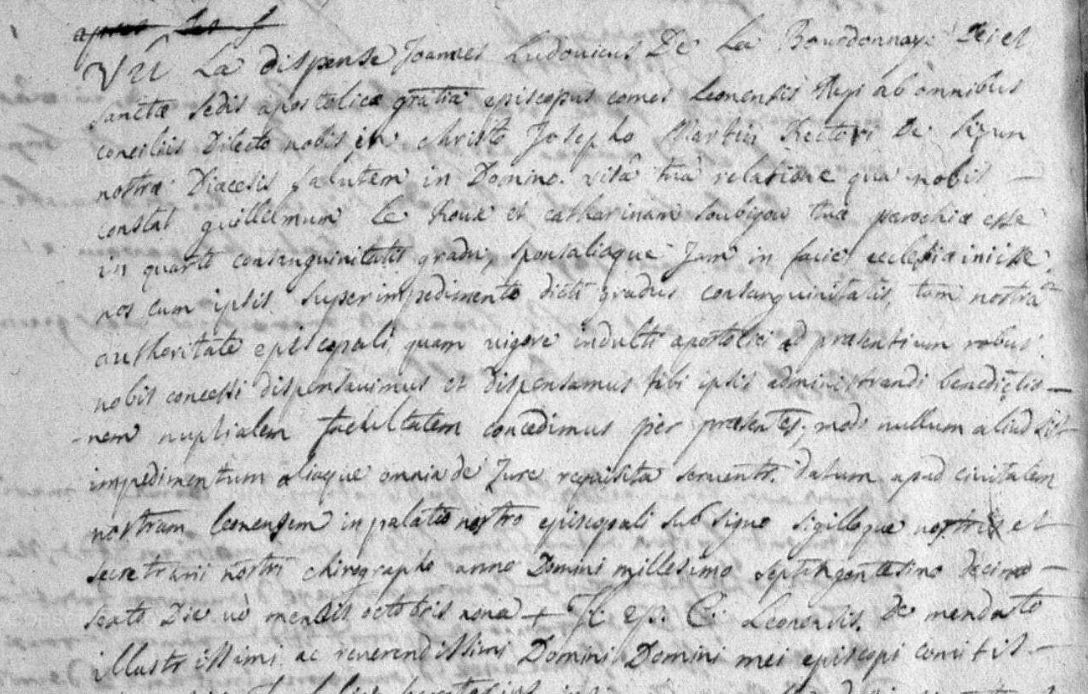 apres les f
VEU La dispense Joannes Ludovicus De La Bourdonnaye Dei et
sanctæ sedis apostolicæ gratia episcopus comes Leonensis Regi ab omnibus
consiliis Dilecto nobis in christo Josepho Martin Rectori De sizun
nostræ Diæcesis salutem in Domino. vestra tua relatione qua nobis
constat guillelmum Le Roux et catharinam soubigou tuæ parochiæ esse
in quarto consanguinitatis gradu, sponsaliaque Jam in facie ecclesiæ iniisse,
nos cum ipsis super impedimento dicti gradus consanguinitatis, tam nostra
authoritate episcopali quam vigore indulti apostolici ad præsentium
nobis concessi dispensavimus et dispensamus tibi ipsis administrandi benedictio-
-nem nuptialem facultatem concedimus per præsentes, modo nullum aliud sit
impedimentum aliaque omnia de Jure requisita serventr. datum apud civitatem
nostram leonensem in palatio nostro episcopali sub signo sigilloque nostris et
secretarii nostri chirographo anno Domini millesimo septingentesimo decimo-
sexto Die vè mensis octobris nona + Je ep. C. Leonensis. De mandato
illustrissimi ac reverendissimi Domini Domini mei episcopi comitis-